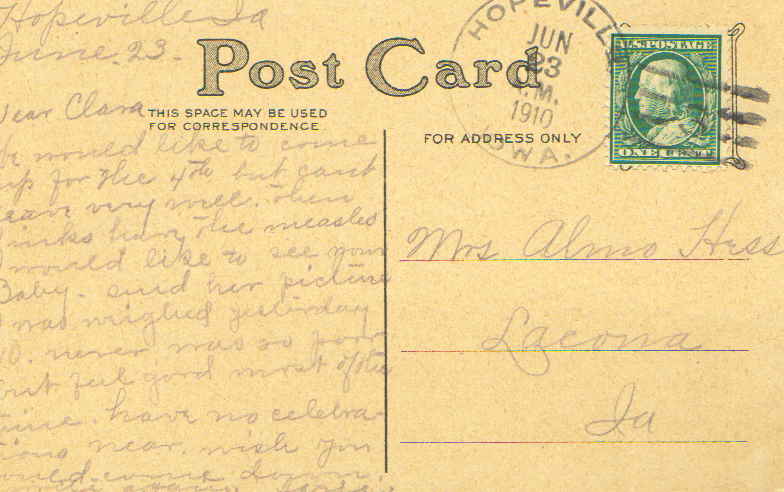 Hopeville Ia
June. 23.
Post Card
THIS SPACE MAY BE USED
FOR CORRESPONDENCE
FOR ADDRESS ONLY
HOPEVILLE
JUN
23
M.
1910
IOWA.
U.S. POSTAGE
ONE CENT
Dear Clara
We would like to come
up for the 4th but cant
leave very well. then
have the measles
I would like to see your
Baby. send her picture
I was weighed yesterday
10. never was so poor
but feel good most of the
time. have no celebra-
tions near. wish you
would come down.
Mrs Almo Hess
Lacona
Ia